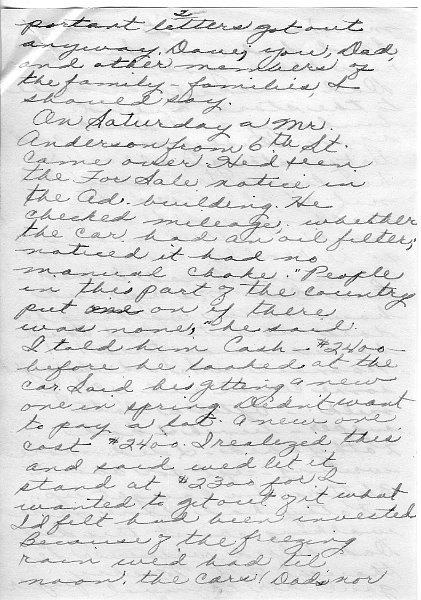 2
portant letters got out
anyway. Dave, you, Dad,
and other members of
the family - families I
should say.
On Saturday a Mr.
Anderson from 6th St.
came over. He'd seen
the For Sale notice in
the Ad. building. He
checked mileage, whether
the car had an oil filter;
noticed it had no
manual choke. "People
in this part of the country
put one on if there
was none," he said.
I told him Cash - $2400
before he looked at the
car. Said he's getting a new
one in spring. Didn't want
to pay a lot. A new one
cost $2400. I realized this
and said we'd let it
stand at $2300 for I
wanted to get out of it what
I'd felt had been invested
Because of the freezing
rain we'd had til
noon, the cars (Dad's nor